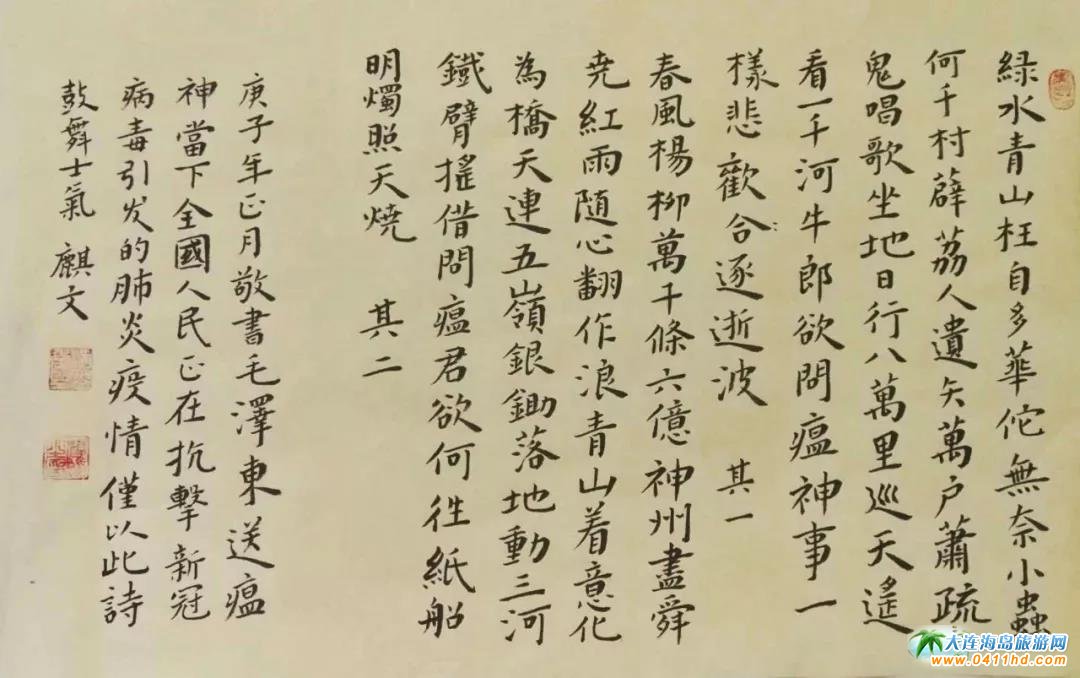 緑水青山枉自多華佗無奈小蟲
何千村薜荔人遺矢萬户蕭疏
鬼唱歌坐地日行八萬里巡天遙
看一千河牛郎欲問瘟神事一
樣悲歡合逐逝波 其一
春風楊柳萬千條六億神州盡舜
尭紅雨随心翻作浪青山着意化
為橋天連五嶺銀鋤落地動三河
鐵臂摇借問瘟君欲何往紙船
明燭照天燒 其二
庚子年正月敬書毛澤東送瘟
神當下全國人民正在抗擊新冠
病毒引发的肺炎疫情僅以此詩
鼓舞士氣 麒文
大连海岛旅游网
www.0411hd.com